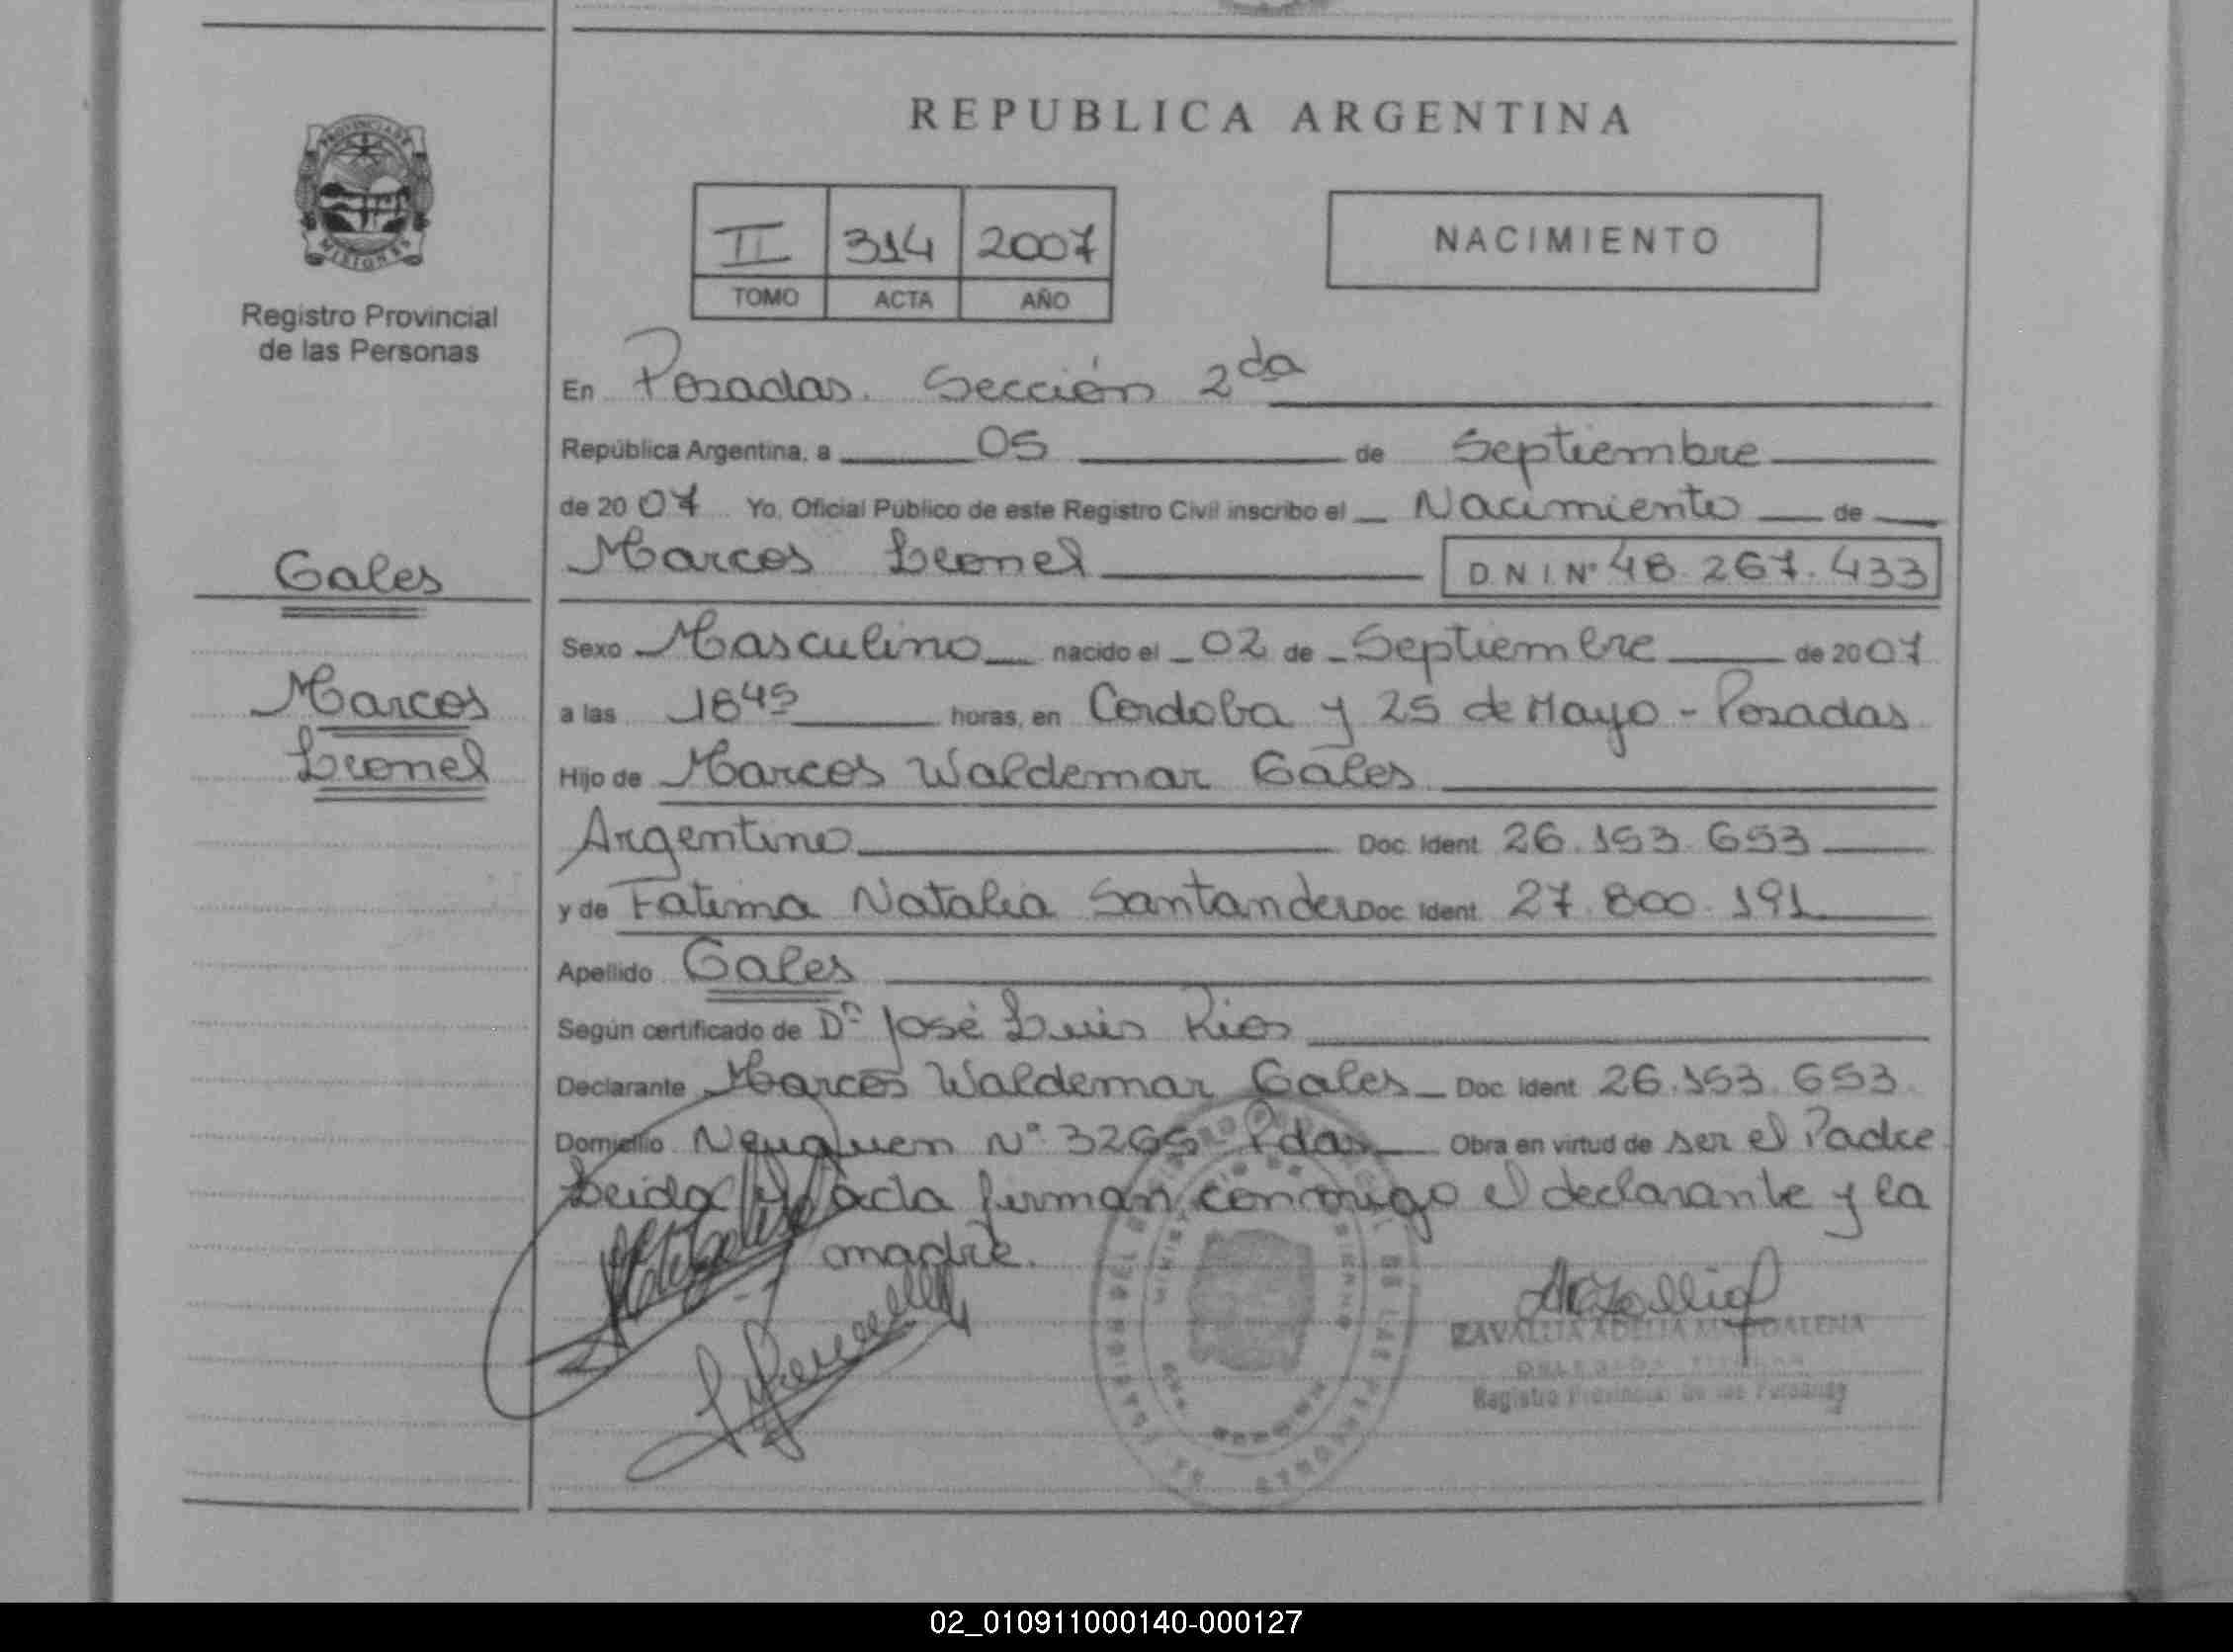 REPUBLICA ARGENTINA
PROVINCIA DE
MISIONES
Registro Provincial
de las Personas
II 314 2007
TOMO ACTA AÑO
NACIMIENTO
En Posadas. Sección 2da
República Argentina, a 05 de Septiembre
de 2007 Yo, Oficial Público de este Registro Civil inscribo el Nacimiento de
Gales
Marcos Leonel D N I Nº 48.267.433
Sexo Masculino nacido el 02 de Septiembre de 2007
Marcos
a las 1845 horas, en Cordoba y 25 de Mayo - Posadas
Leonel
Hijo de Marcos Waldemar Gales
Argentino Doc. Ident. 26.153.653
y de Fatima Natalia Santander Doc. Ident. 27.800.191
Apellido Gales
Según certificado de Dr José Luis Rios
Declarante Marcos Waldemar Gales Doc. Ident. 26.153.653
Domicilio Neuquen Nº 3265 Pdas Obra en virtud de ser el Padre
Leida el acta firman conmigo el declarante y la
madre.
ZAVALLIA ADELIA MAGDALENA
DELEGADA TITULAR
Registro Provincial de las Personas
02_010911000140-000127